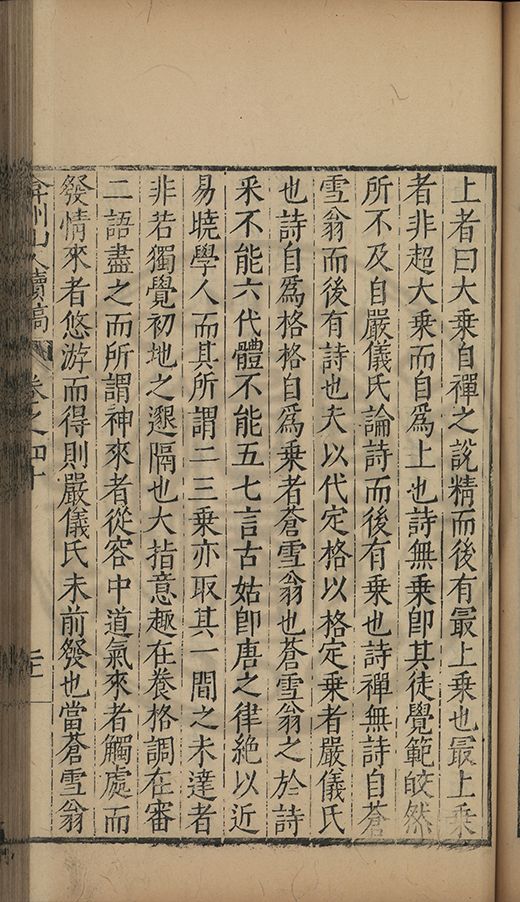 上者曰大乗自禪之說精而後有最上乗也最上乗
者非超大乗而自爲上也詩無乗卽其徒覺範皎然
所不及自嚴儀氏論詩而後有乗也詩禪無詩自蒼
雪翁而後有詩也夫以代定格以格定乗者嚴儀氏
也詩自爲格格自爲乗者蒼雪翁也蒼雪翁之於詩
采不能六代體不能五七言古姑卽唐之律絶以近
易曉學人而其所謂二三乗亦取其一間之未達者
非若獨覺初地之邈隔也大指意趣在養格調在審
二語盡之而所謂神來者從容中道氣來者觸處而
發情來者悠游而得則嚴儀氏未前發也當蒼雪翁
弇州山人續稿 卷之四十